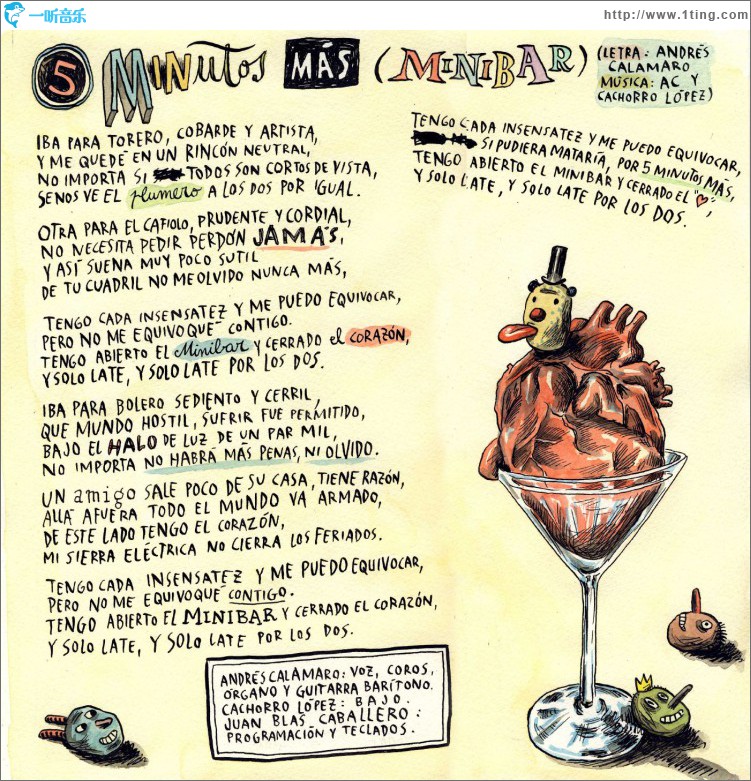 一听音乐
http://www.1ting.com
5 MINUTOS MÁS (MINIBAR)
(LETRA: ANDRÉS
CALAMARO
MÚSICA: AC Y
CACHORRO LÓPEZ)
IBA PARA TORERO, COBARDE Y ARTISTA,
Y ME QUEDÉ EN UN RINCÓN NEUTRAL,
NO IMPORTA SI TODOS SON CORTOS DE VISTA,
SE NOS VE EL plumero A LOS DOS POR IGUAL.
OTRA PARA EL CAFIOLO, PRUDENTE Y CORDIAL,
NO NECESITA PEDIR PERDÓN JAMÁS,
Y ASÍ SUENA MUY POCO SUTIL
DE TU CUADRIL NO ME OLVIDO NUNCA MÁS,
TENGO CADA INSENSATEZ Y ME PUEDO EQUIVOCAR,
PERO NO ME EQUIVOQUÉ CONTIGO.
TENGO ABIERTO EL Minibar Y CERRADO el CORAZÓN,
Y SOLO LATE, Y SOLO LATE POR LOS DOS.
IBA PARA BOLERO SEDIENTO Y CERRIL,
QUE MUNDO HOSTIL, SUFRIR FUE PERMITIDO,
BAJO EL HALO DE LUZ DE UN PAR MIL,
NO IMPORTA NO HABRÁ MÁS PENAS, NI OLVIDO.
UN amigo SALE POCO DE SU CASA, TIENE RAZÓN,
ALLÁ AFUERA TODO EL MUNDO VA ARMADO,
DE ESTE LADO TENGO EL CORAZÓN,
MI SIERRA ELÉCTRICA NO CIERRA LOS FERIADOS.
TENGO CADA INSENSATEZ Y ME PUEDO EQUIVOCAR,
PERO NO ME EQUIVOQUÉ CONTIGO.
TENGO ABIERTO EL MINIBAR Y CERRADO EL CORAZÓN,
Y SOLO LATE, Y SOLO LATE POR LOS DOS.
TENGO CADA INSENSATEZ Y ME PUEDO EQUIVOCAR,
SI PUDIERA MATARÍA, POR 5 MINUTOS MÁS,
TENGO ABIERTO EL MINIBAR Y CERRADO EL "♥",
Y SOLO LATE, Y SOLO LATE POR LOS DOS.
ANDRÉS CALAMARO: VOZ, COROS,
ÓRGANO Y GUITARRA BARÍTONO.
CACHORRO LÓPEZ: BAJO.
JUAN BLAS CABALLERO:
PROGRAMACIÓN Y TECLADOS.